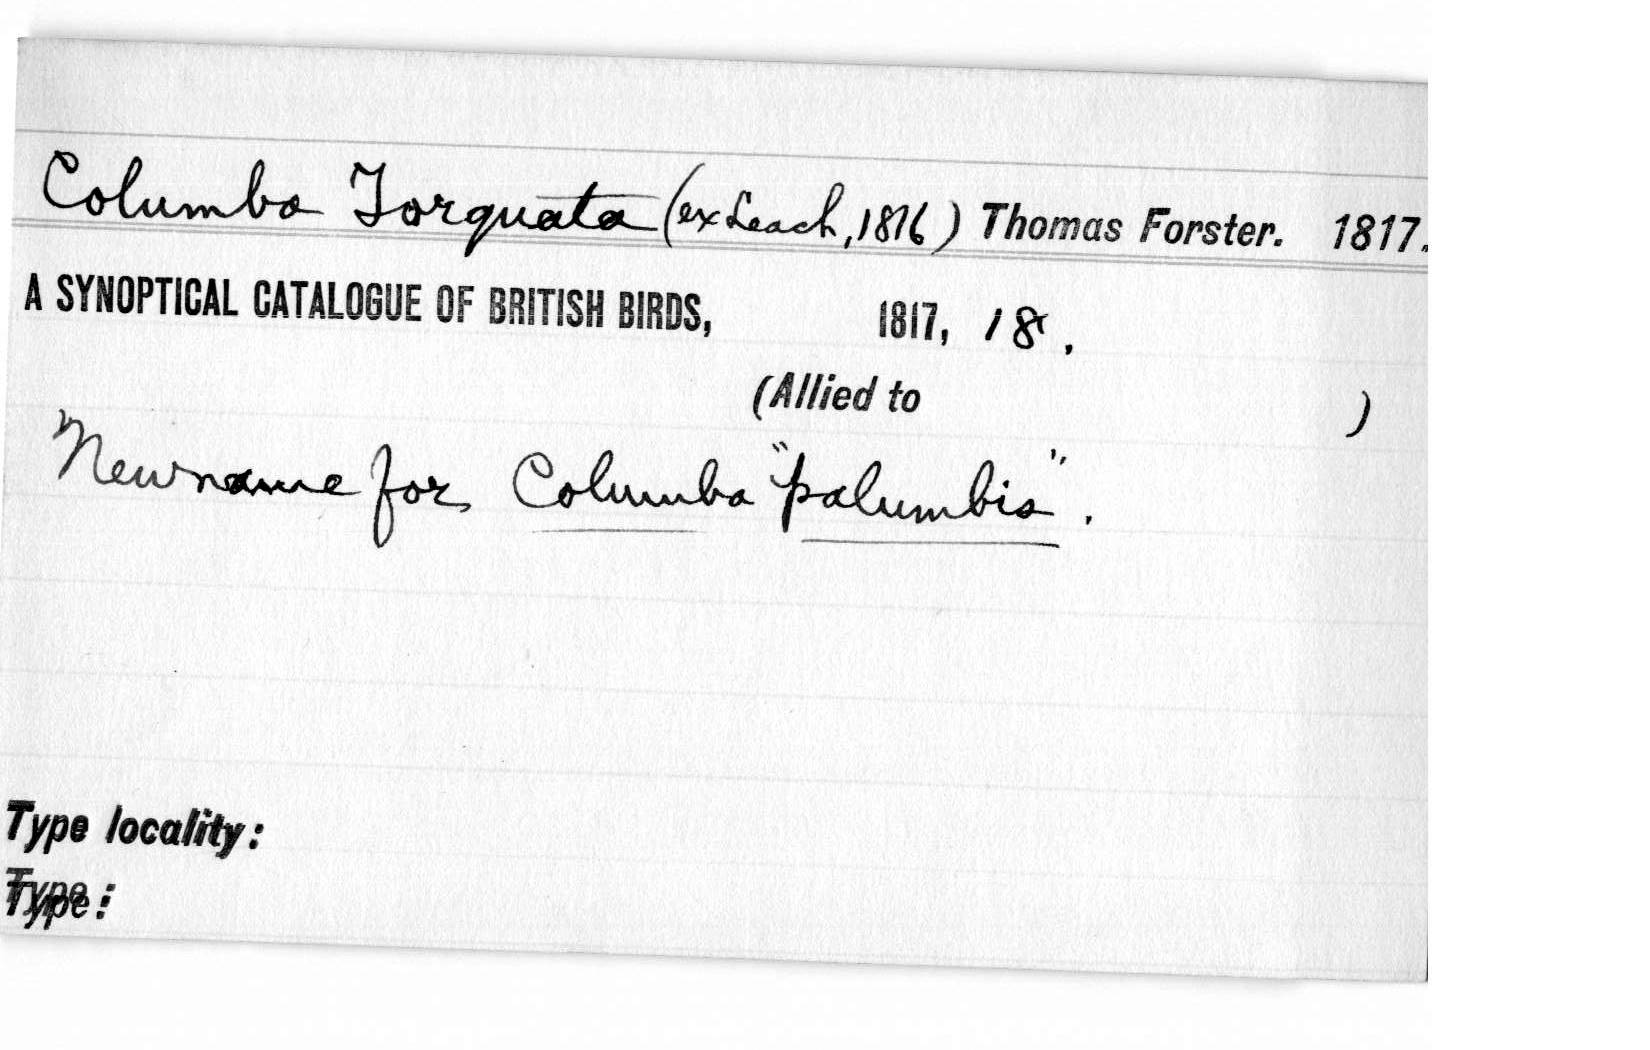 Columba Torquata (ex Leach, 1816) Thomas Forster. 1817.
A SYNOPTICAL CATALOGUE OF BRITISH BIRDS, 1817, 18.
(Allied to )
New name for Columba "palumbis".
Type locality:
Type: